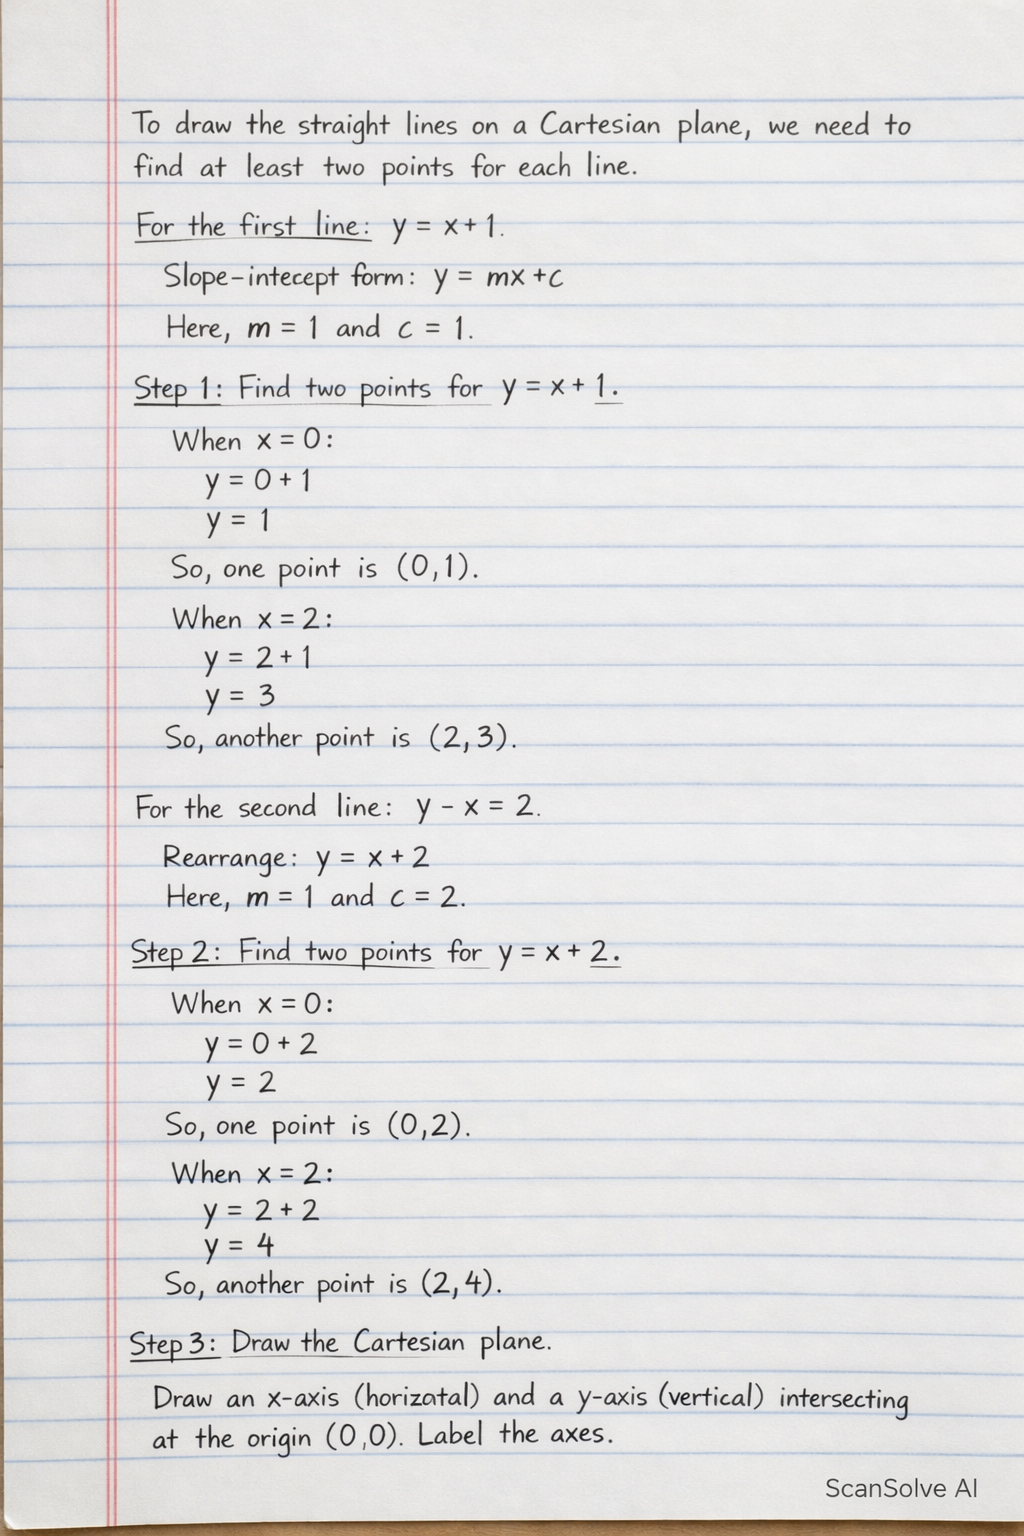 To draw the straight lines on a Cartesian plane, we need to
find at least two points for each line.
For the first line: y = x + 1.
Slope-intecept form: y = mx + c
Here, m = 1 and c = 1.
Step 1: Find two points for y = x + 1.
When x = 0:
y = 0 + 1
y = 1
So, one point is (0,1).
When x = 2:
y = 2 + 1
y = 3
So, another point is (2,3).
For the second line: y - x = 2.
Rearrange: y = x + 2
Here, m = 1 and c = 2.
Step 2: Find two points for y = x + 2.
When x = 0:
y = 0 + 2
y = 2
So, one point is (0,2).
When x = 2:
y = 2 + 2
y = 4
So, another point is (2,4).
Step 3: Draw the Cartesian plane.
Draw an x-axis (horizatal) and a y-axis (vertical) intersecting
at the origin (0,0). Label the axes.
ScanSolve AI